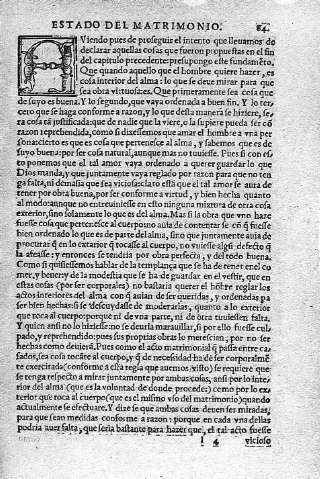 ESTADO DEL MATRIMONIO. 84.
AViendo pues de proseguir el intento que lleuamos de
declarar aquellas cosas que fueron propuestas en el fin
del capitulo precedente: presupongo este fundamẽto.
Que quando aquello que el hombre quiere hazer, es
cosa interior del alma: lo que se deue mirar para que
sea obra virtuosa: es. Que primeramente sea cosa que
de suyo es buena. Y lo segundo, que vaya ordenado a buen fin. Y lo ter-
cero que se haga conforme a razon, y lo que desta manera se hiziere, se-
ra cosa tã justificada: que de nadie que la viere, o la supiere pueda ser cõ
razon reprehendida, como si dixessemos que amar el hombre a vna per
sona: cierto es que es cosa que pertenesce al alma, y sabemos que es de
suyo buena: por ser cosa natural, aunque mas no tuuiesse. Pues si con es-
to ponemos que el tal amor vaya ordenado a querer guardar lo que
Dios manda, y que juntamente vaya reglado por razon para que no ten
ga falta, ni demasia que sea vicioso: claro esta que el tal amor se aura de
tener por obra buena, por ser conforme a virtud, y bien hecha quanto
al modo: aunque no entreuiniesse en esto ninguna mixtura de otra cosa
exterior, sino solamente lo que es del alma. Mas si la obra que vno haze
fuesse cosa que pertenesce al cuerpo: no aura de contentarse cõ q̃ fuesse
bien ordenado lo que es de parte del alma, sino que juntamente aura de
procurar q̃ en lo exterior q̃ tocasse al cuerpo, no vuiesse algũ defecto q̃
la afeasse: y entonces se tendria por obra perfecta, y del todo buena.
Como si quisiessemos hablar de la templança que se ha de tener en el co
mer, y beuer, y de la modestia que se ha de guardar en el vestir, que en
estas cosas (por ser corporales) no bastaria querer el hõbre reglar los
actos interiores del alma con q̃ aulan de ser queridas, y ordenadas pa
ser bien hechas: si se descuydasse de moderarlas, quanto a lo exterior
que toca al cuerpo: porque ni de vna parte, ni de otra tuuiessen falta.
Y quien ansi no lo hiziesse: no se deuria marauillar, si por ello fuesse cul-
pado, y reprehendido: pues sus propias obras lo merescian, por no ser
hechas como deuierã. Pues como el acto matrimonial q̃ passa entre ca-
sados, sea cosa tocãte al cuerpo, y q̃ de necessidad ha de ser corporalmẽ
te exercitada (conforme a esta regla que auemos visto) se requiere que
se tenga respecto a mirar juntamente por ambas cosas, ansi por lo inte-
rior del alma (que es la voluntad de donde procede) como por lo ex-
terior que toca al cuerpo (que es el mismo vso del matrimonio) quando
actualmente se efectuare. Y dize se que ambas cosas deuen ser miradas,
para que sean medidas conforme a razon: porque en cada vna dellas
podria auer falta, que seria bastante para hazer que, el tal acto fuesse
l 4 vicioso